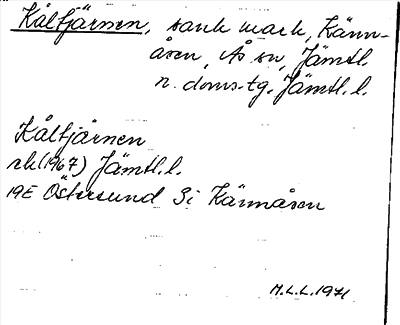 Kåltjärnen, sank mark, Känn-
åsen, Ås sn, Jämtl.
n. doms.tg. Jämtl. l.
Kåltjärnen
rk (1967) Jämtl. l.
19E Östersund 3i Kännåsen
M.L.L. 1971